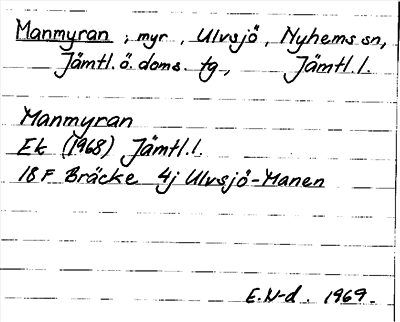 Manmyran, myr, Ulvsjö, Nyhems sn,
Jämtl. ö. doms. tg, Jämtl. l.
Manmyran
Ek (1968) Jämtl. l.
18 F Bräcke 4j Ulvsjö-Manen
E.N-d. 1969.